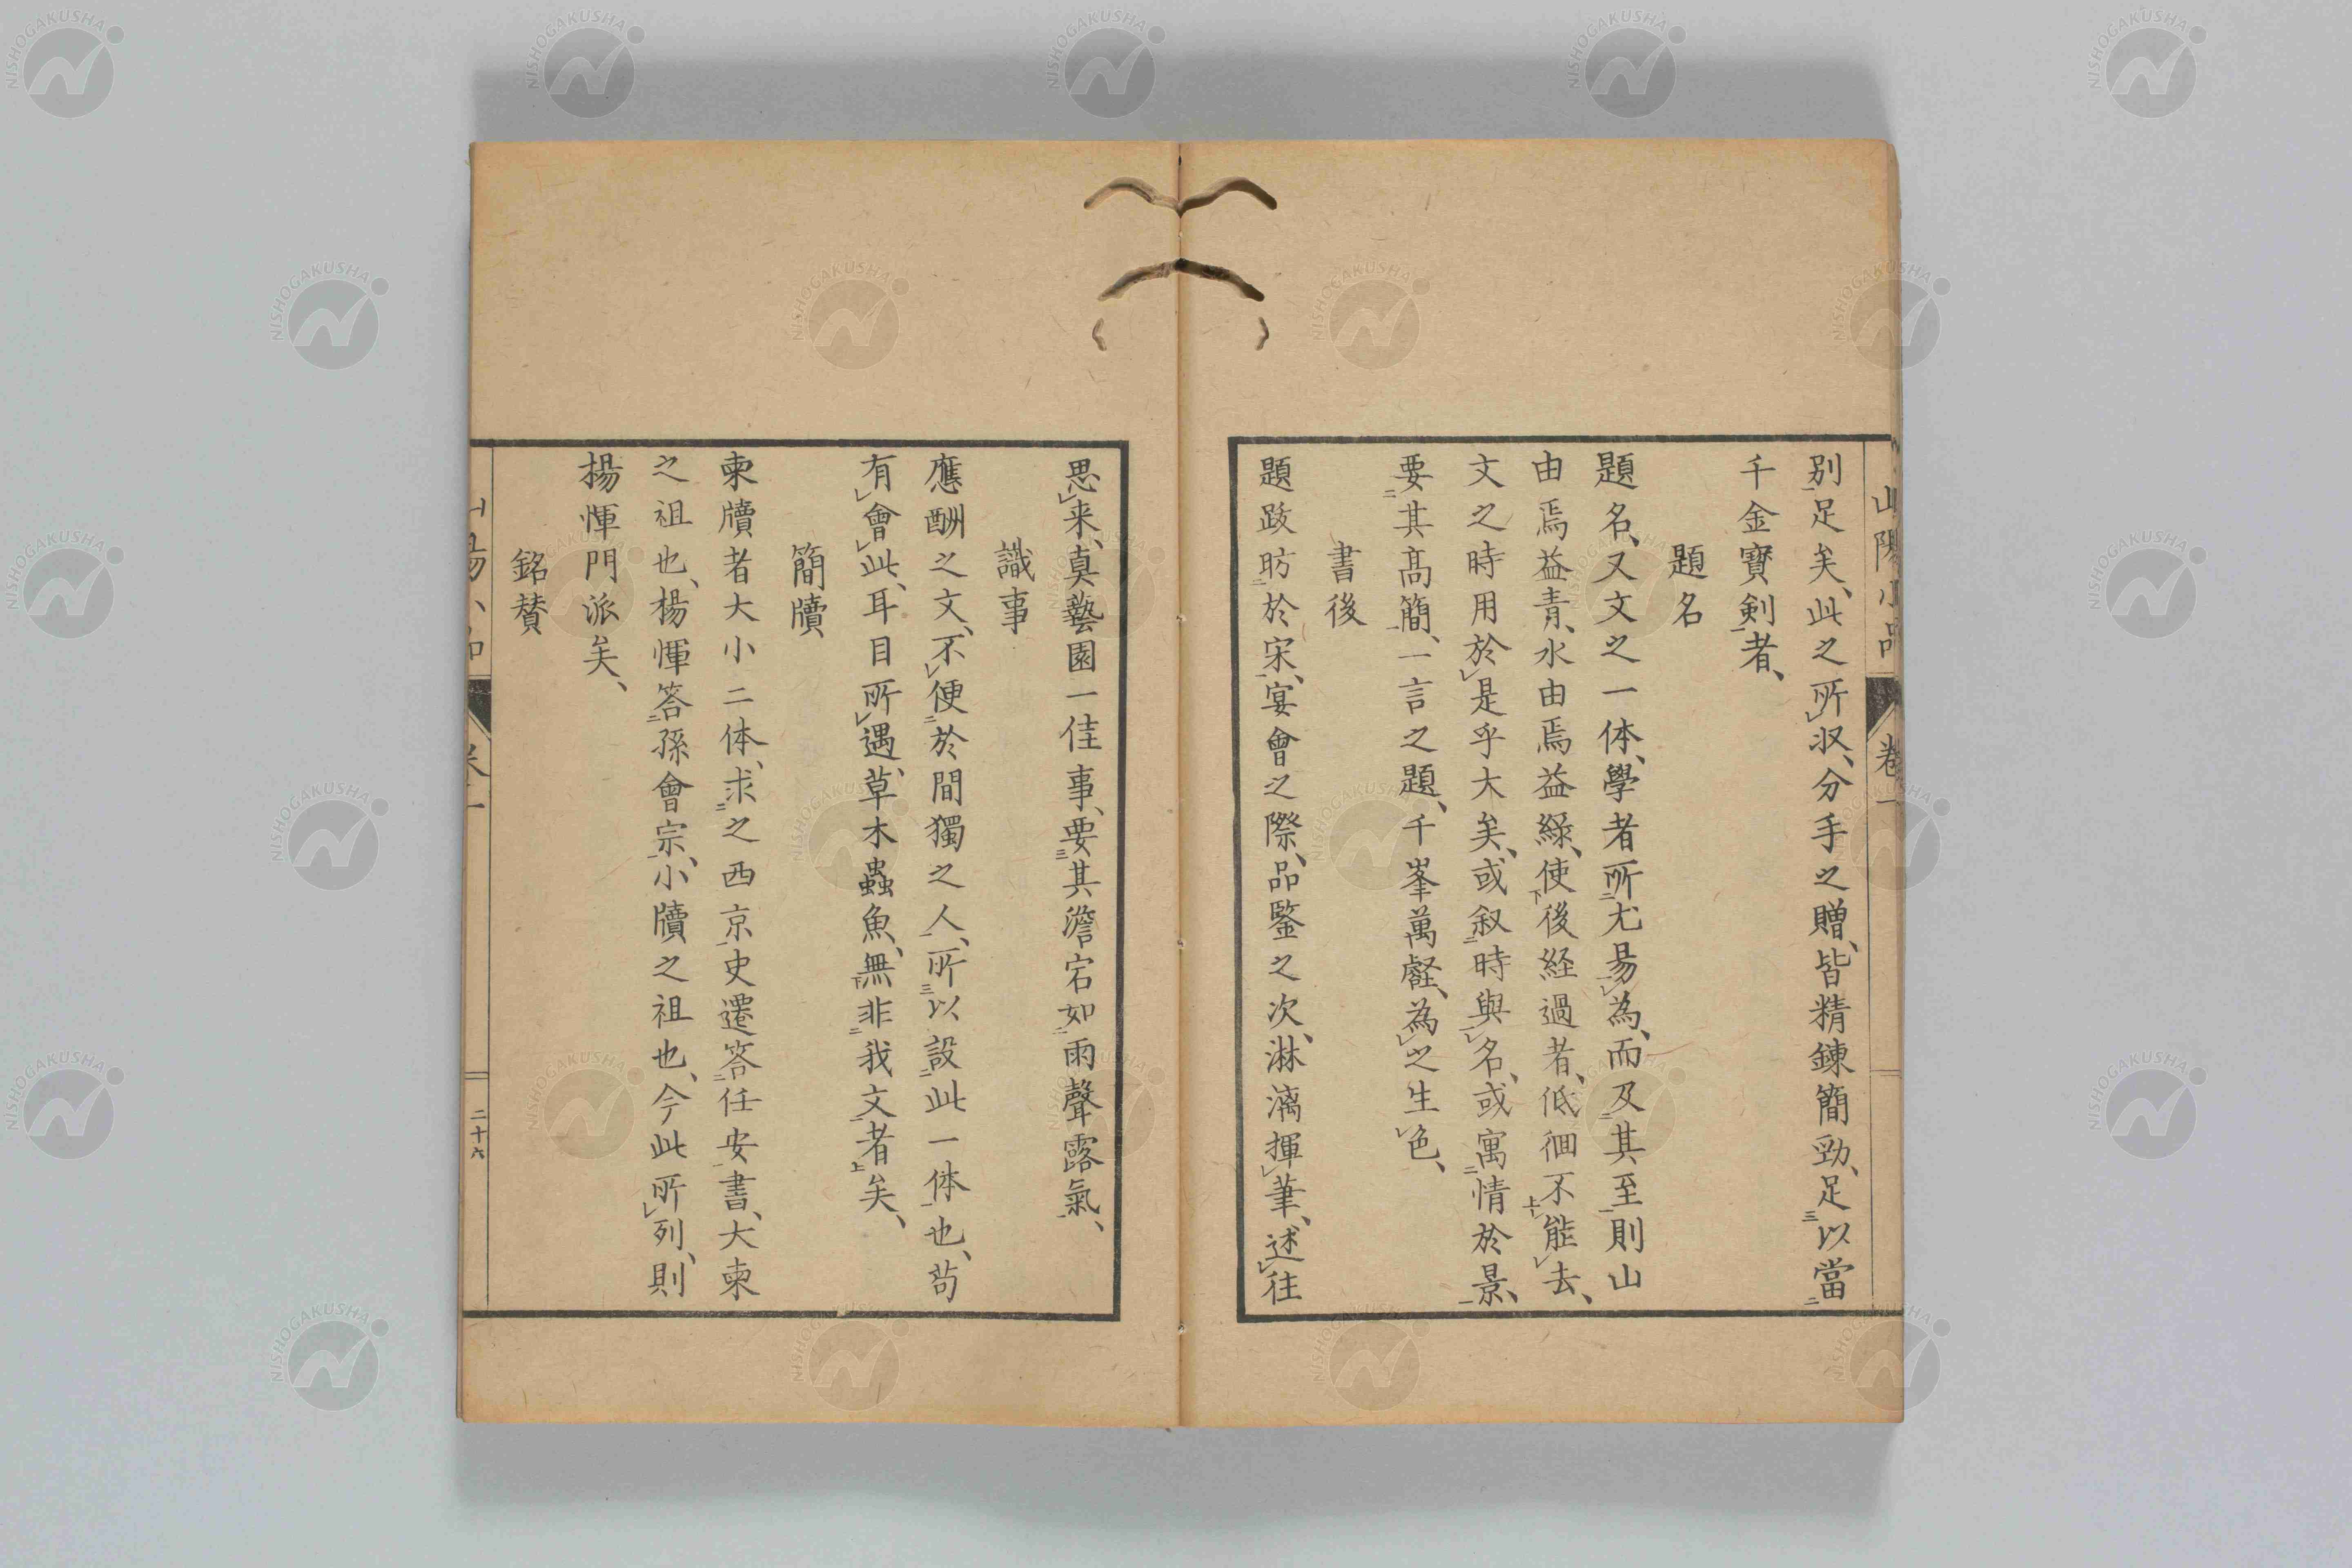 別足矣、此之所収、分手之贈、皆精錬簡勁、足以當
千金寶剣者、
題名
題名、又文之一体、學者所尤易為、而及其至則山
由焉益青、水由焉益緑、使後経過者、低徊不能去、
文之時用於是乎大矣、或叙時與名、或寓情於景、
要其高簡、一言之題、千峯萬壑、為之生色、
書後
題跋昉於宋、宴會之際、品鑒之次、淋漓揮筆、述往
思来、真藝園一佳事、要其澹宕如雨聲露氣、
識事
應酬之文、不便於間獨之人、所以設此一体也、苟
有會此、耳目所遇、草木蟲魚、無非我文者矣、
簡牘
柬牘者大小二体、求之西京史遷答任安書、大柬
之祖也、楊惲答孫會宗、小牘之祖也、今此所列、則
楊惲門派矣、
銘賛
山陽小品
卷一
二十六
NISHOGAKUSHA